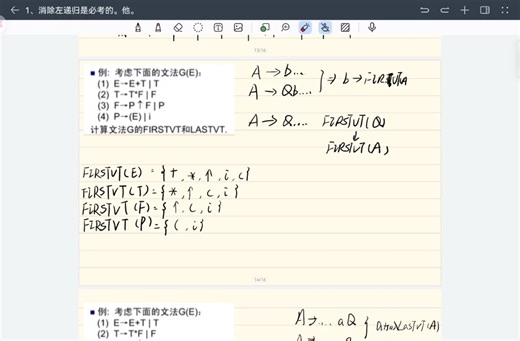 1、消除左递归是必考的。他。
13/16
■ 例: 考虑下面的文法G(E):
(1) E→E+T | T
(2) T→T*F | F
(3) F→P↑F | P
(4) P→(E) | i
计算文法G的FIRSTVT和LASTVT.
A → b...
A → Qb... } ⇒ b → FIRSTVTA
A → Q.... FIRSTVT(Q)
↓
FIRSTVT(A)
FIRSTVT(E) = { +, *, ↑, i, ( }
FIRSTVT(T) = { *, ↑, (, i }
FIRSTVT(F) = { ↑, (, i }
FIRSTVT(P) = { (, i }
14/16
■ 例: 考虑下面的文法G(E):
(1) E→E+T | T
(2) T→T*F | F
A → ... aQ } LASTVT(A)